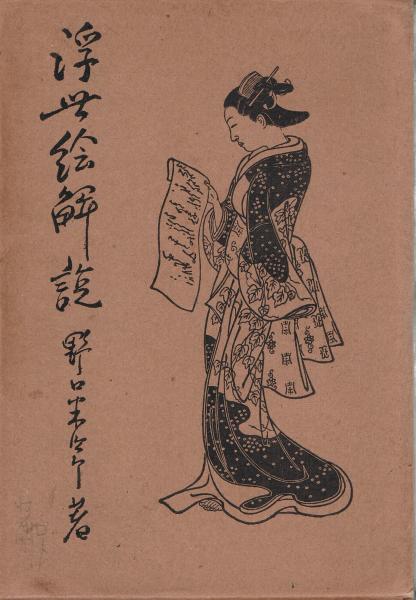 浮世絵解説
野口米次郎著